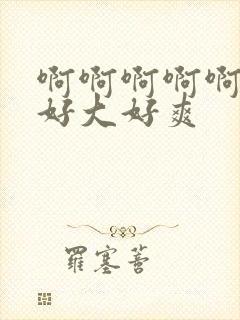 啊啊啊啊啊
好大好爽
羅塞菩